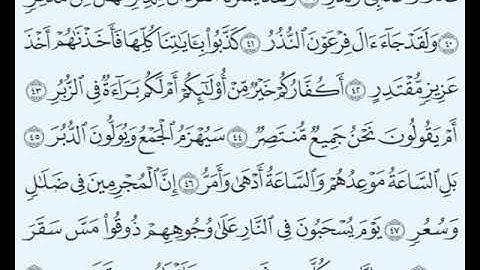 وَلَقَدْ جَآءَ ءَالَ فِرْعَوْنَ ٱلنُّذُرُ ٤١ كَذَّبُوا۟ بِـَٔايَـٰتِنَا كُلِّهَا فَأَخَذْنَـٰهُمْ أَخْذَ
عَزِيزٍ مُّقْتَدِرٍ ٤٢ أَكُفَّارُكُمْ خَيْرٌ مِّنْ أُو۟لَـٰٓئِكُمْ أَمْ لَكُم بَرَآءَةٌ فِى ٱلزُّبُرِ ٤٣
أَمْ يَقُولُونَ نَحْنُ جَمِيعٌ مُّنتَصِرٌ ٤٤ سَيُهْزَمُ ٱلْجَمْعُ وَيُوَلُّونَ ٱلدُّبُرَ ٤٥
بَلِ ٱلسَّاعَةُ مَوْعِدُهُمْ وَٱلسَّاعَةُ أَدْهَىٰ وَأَمَرُّ ٤٦ إِنَّ ٱلْمُجْرِمِينَ فِى ضَلَـٰلٍ
وَسُعُرٍ ٤٧ يَوْمَ يُسْحَبُونَ فِى ٱلنَّارِ عَلَىٰ وُجُوهِهِمْ ذُوقُوا۟ مَسَّ سَقَرَ